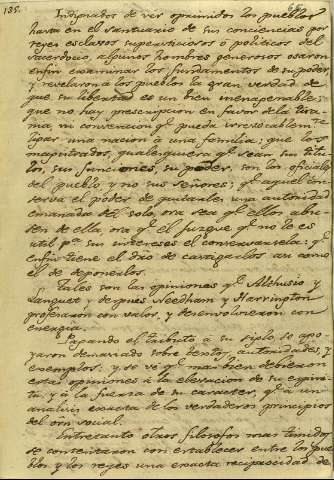 135.
Indignados de ver oprimidos los pueblos
hasta en el santuario de sus conciencias por
reyes esclavos supersticiosos ó politicos del
sacerdocio, algunos hombres generosos osaron
enfin examinar los fundamentos de su poder,
y revelaron a los pueblos la gran verdad de
que su libertad es un bien inenagenable;
que no hay prescripcion en favor de la tira-
nia, ni convencion qe pueda irrevocablemte
ligar una nacion a una familia; que los
magistrados, qualesquiera qe sean sus titu-
los, sus funciones, su poder, son los oficiales
del pueblo y no sus señores; qe aquel con-
serva el poder de quitarle una autoridad
emanada del solo, ora sea qe ellos abu-
sen de ella, ora qe el juzgue qe no le es
util pa. sus intereses el conservarsela: y qe
enfin tiene el dro de castigarlos asi como
el de deponerlos.
Tales son las opiniones qe Althusio y
Languet y despues Needham y Harrington
profesaron con valor, y desenvolvieron con
energia.
Pagando el tributo a su siglo se apo-
yaron demasiado sobre textos, autoridades, y
exemplos: y se vé qe mas bien debieron
estas opiniones á la elevacion de su espiri-
tu, y á la fuerza de su caracter, qe á un
analisis exacta de los verdaderos principios
del orn social.
Entretanto otros filosofos mas timidos
se contentaron con establecer entre los pue-
blos y los reyes una exacta reciprocidad de